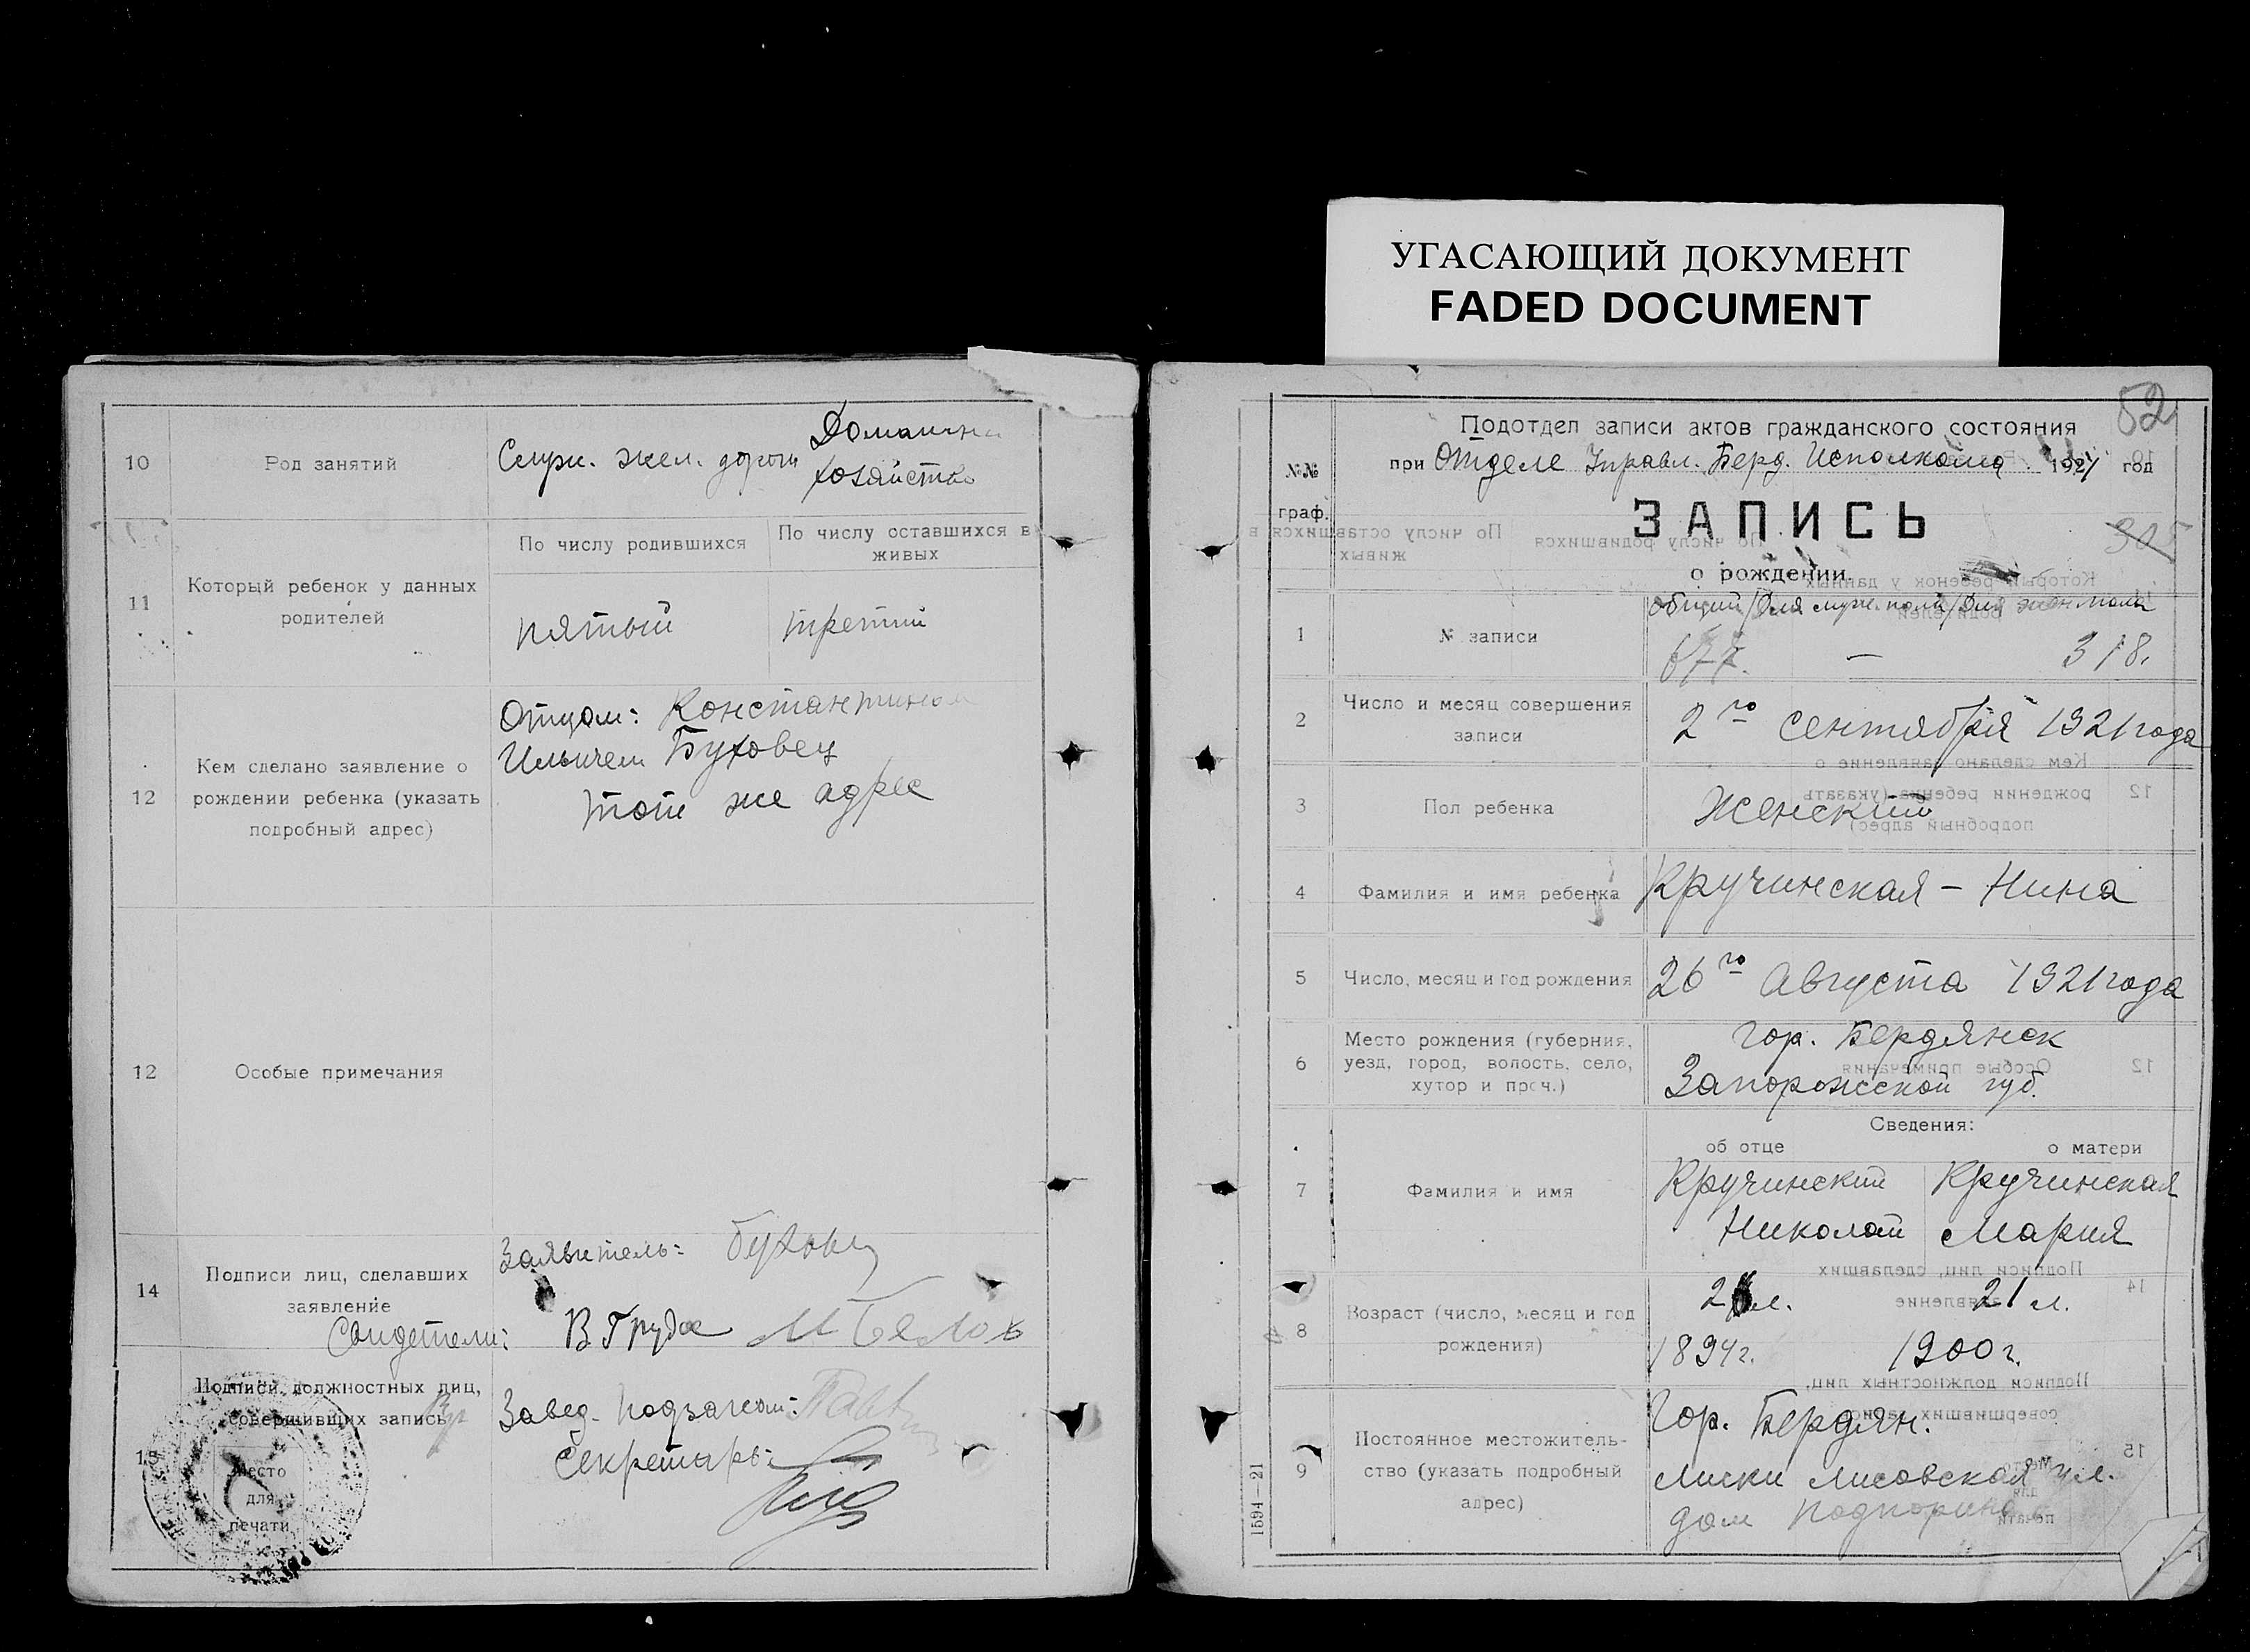 УГАСАЮЩИЙ ДОКУМЕНТ
FADED DOCUMENT
10
Род занятий
Служ. жел. дороги
Домашнее
хозяйство
11
Который ребенок у данных
родителей
По числу родившихся
По числу оставшихся в
живых
пятый
третий
12
Кем сделано заявление о
рождении ребенка (указать
подробный адрес)
Отцом: Константином
Ильичем Буховец
тот же адрес
12
Особые примечания
14
Подписи лиц, сделавших
заявление
Заявитель: Буховец
Свидетели: В Груда М Белов
15
Подписи должностных лиц,
совершивших запись
Место
для
печати
Завед. подзагсом:
Секретарь:
52
Подотдел записи актов гражданского состояния
при Отделе Управл. Берд. Исполкома 1921 год
№№
граф.
ЗАПИСЬ
305
о рождении
1
№ записи
Общий/для муж. пола/для жен. пола
677. — 318.
2
Число и месяц совершения
записи
2го сентября 1921 года
3
Пол ребенка
Женский
4
Фамилия и имя ребенка
Кручинская - Нина
5
Число, месяц и год рождения
26го Августа 1921 года
6
Место рождения (губерния,
уезд, город, волость, село,
хутор и проч.)
Гор. Бердянск
Запорожской губ.
Сведения:
об отце
о матери
7
Фамилия и имя
Кручинский
Николай
Кручинская
Мария
8
Возраст (число, месяц и год
рождения)
л.
1894 г.
21 л.
1900 г.
9
Постоянное местожитель-
ство (указать подробный
адрес)
Гор. Бердян.
Лиски Лисовская ул.
дом
1594—21